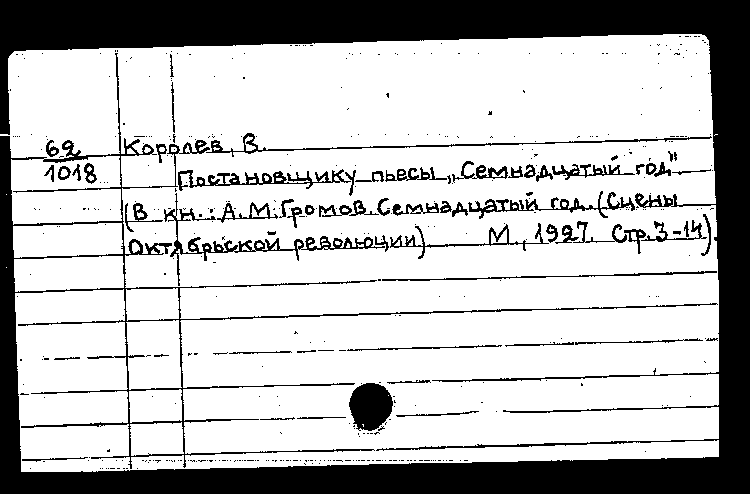 62
1018
Королев, В.
Постановщику пьесы „Семнадцатый год".
(В кн.: А.М.Громов. Семнадцатый год. (Сцены
Октябрьской революции) М., 1927. Стр. 3-14).